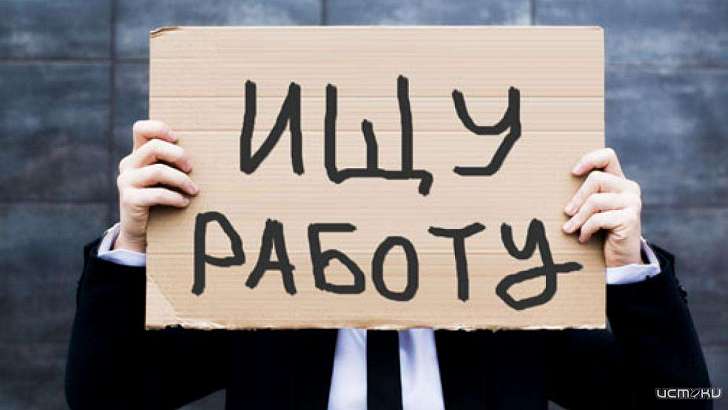 ИЩУ
РАБОТУ
истоки